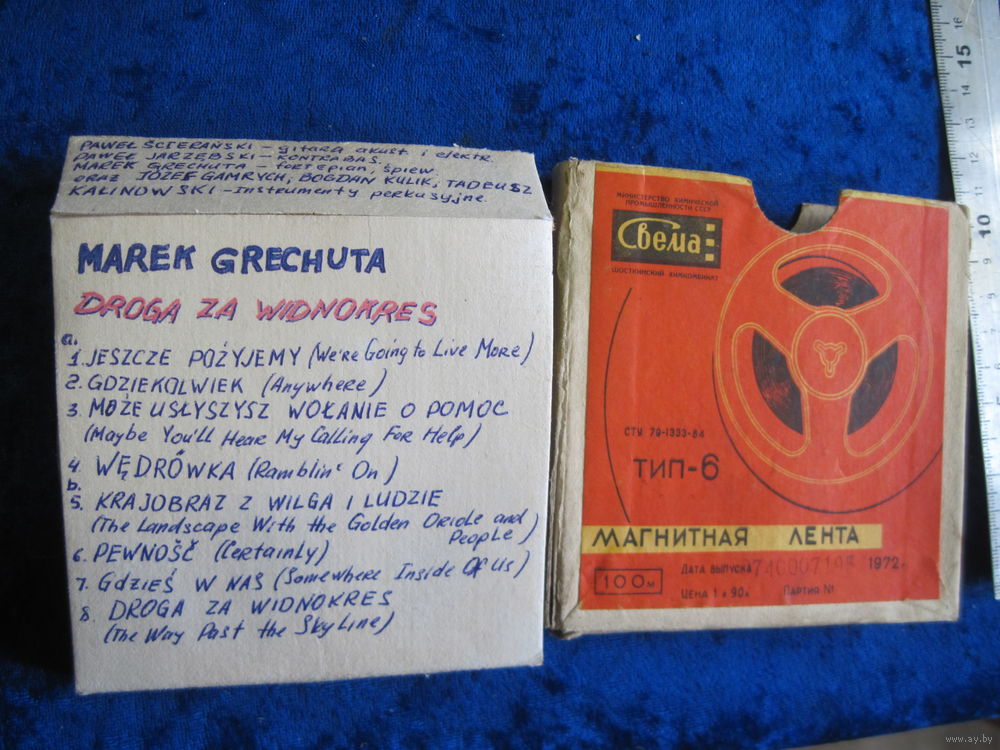 PAWEŁ ŚCIERAŃSKI - gitara akust i elektr.
PAWEŁ JARZĘBSKI - KONTRABAS.
MAREK GRECHUTA - fortepian, śpiew
oraz JÓZEF GAMRYCH, BOGDAN KULIK, TADEUSZ
KALINOWSKI - Instrumenty perkusyjne.
MAREK GRECHUTA
DROGA ZA WIDNOKRES
a.
1. JESZCZE POŻYJEMY (We're Going to Live More)
2. GDZIEKOLWIEK (Anywhere)
3. MOŻE USŁYSZYSZ WOŁANIE O POMOC
(Maybe You'll Hear My Calling For Help)
4. WĘDRÓWKA (Ramblin' On)
b.
5. KRAJOBRAZ Z WILGA I LUDZIE
(The Landscape With the Golden Oriole and
People)
6. PEWNOŠČ (Certainly)
7. GDZIEŚ W NAS (Somewhere Inside Of Us)
8. DROGA ZA WIDNOKRES
(The Way Past the SkyLine)
МИНИСТЕРСТВО ХИМИЧЕСКОЙ
ПРОМЫШЛЕННОСТИ СССР
Свема
ШОСТКИНСКИЙ ХИМКОМБИНАТ
СТУ 79-1333-64
ТИП-6
МАГНИТНАЯ ЛЕНТА
100м
Дата выпуска 1972г.
Цена 1 р 90к Партия №
16
15
14
13
12
11
10
9
8
7
6
5
4
www.ay.by